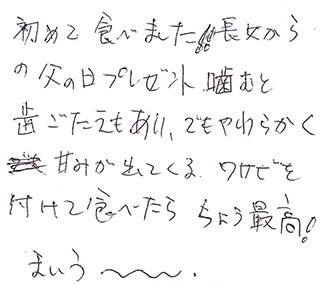 初めて食べました!!長女から
の父の日プレゼント.噛むと
歯ごたえもあり、でもやわらかく
甘みが出てくる.ワサビを
付けて食べたらちょう最高!
まいう〜〜.